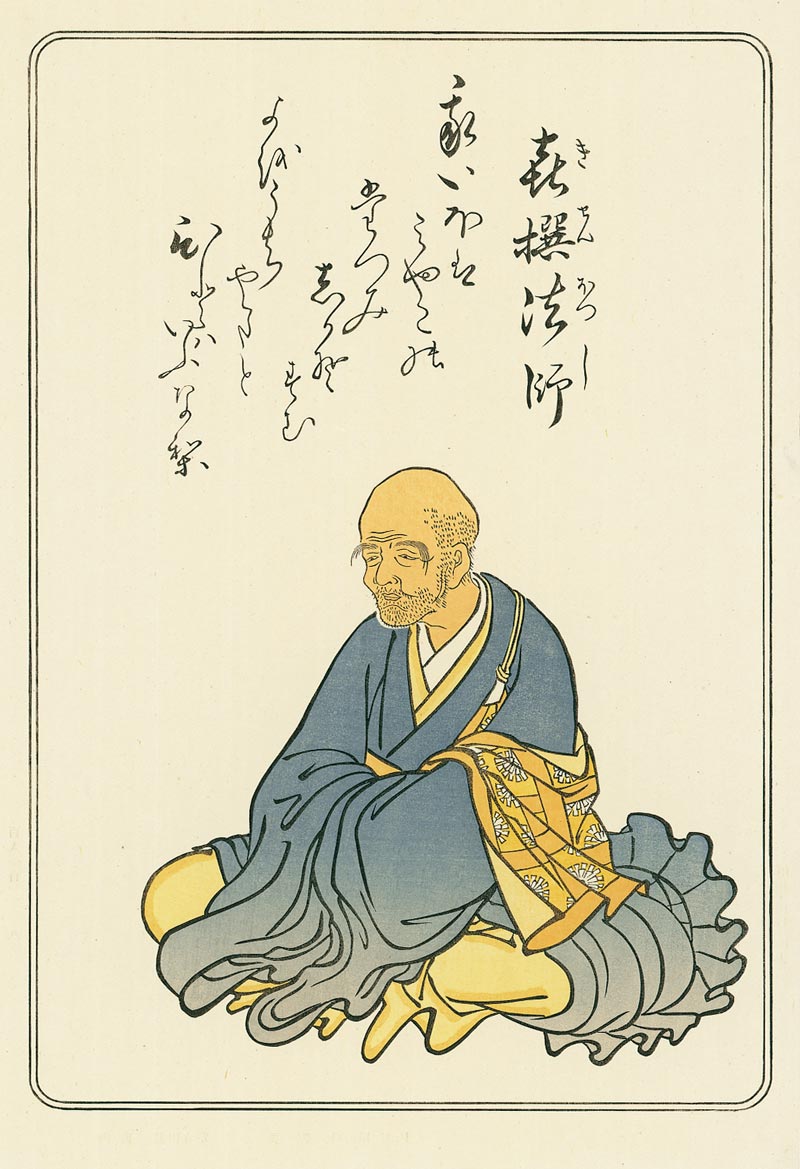 喜撰法師
きせんほつし
我いほは
みやこの
たつみ
しかそ
すむ
よをうち
やまと
ひとはいふなり